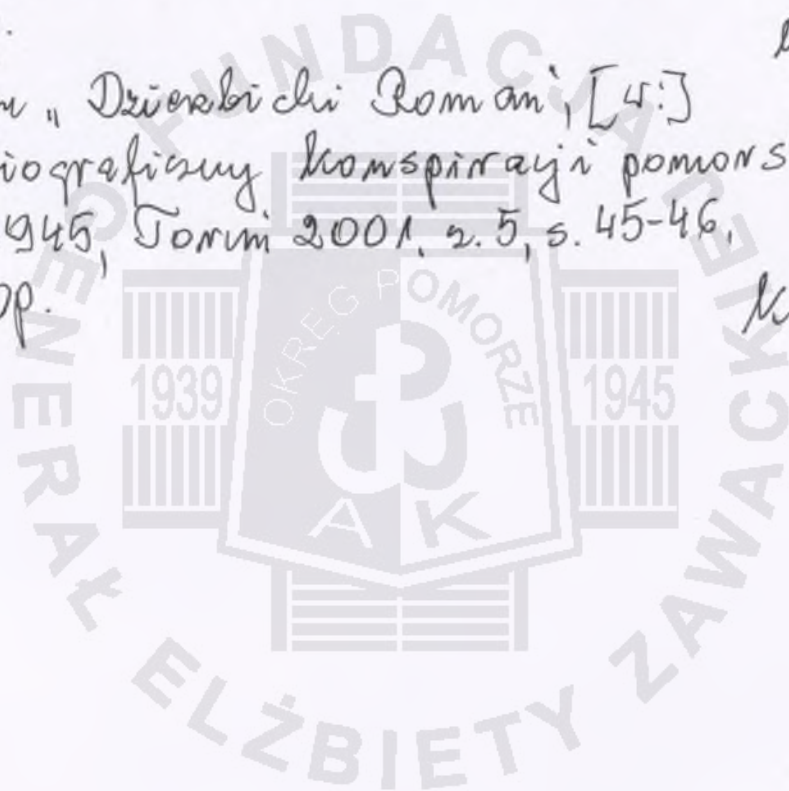 „Dzierzbicki Roman”, [w:]
iograficzny konspiracji pomors
945, Toruń 2001, z. 5, s. 45-46.
op.
FUNDACJA GENERAŁ ELŻBIETY ZAWACKIE
OKRĘG POMORZE
1939
1945
AK